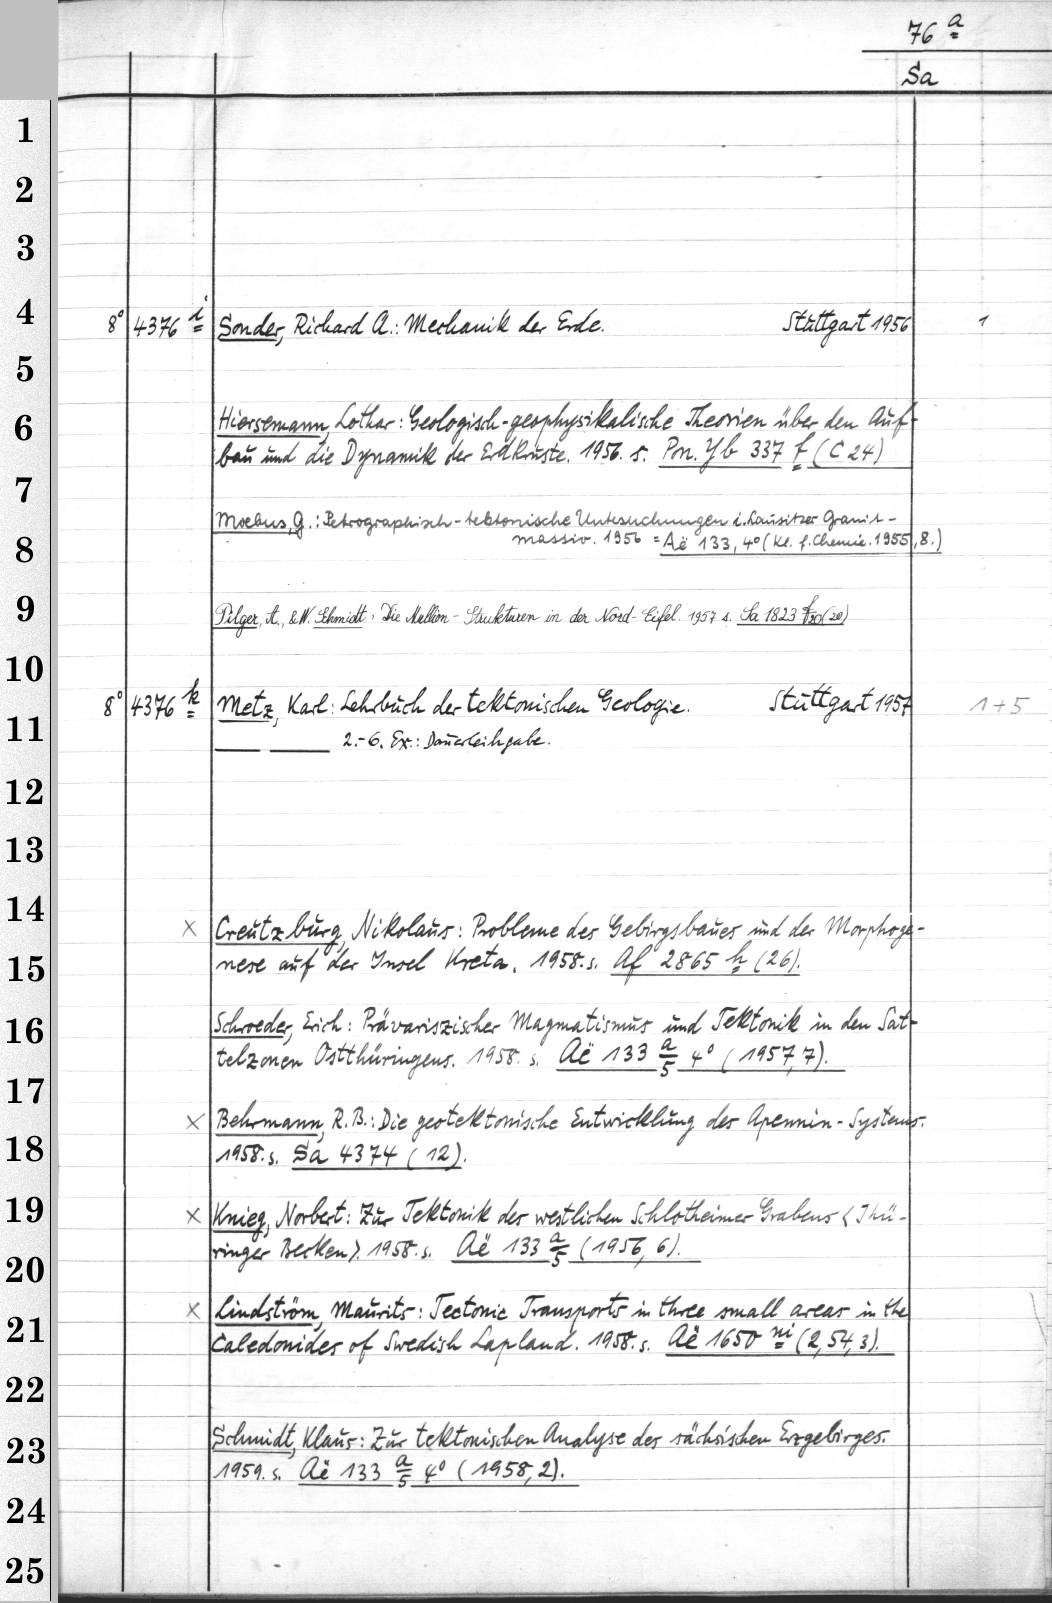 76 a
Sa
1
2
3
4
8° 4376 i Sonder, Richard A.: Mechanik der Erde. Stuttgart 1956 1
5
6
Hiersemann, Lothar: Geologisch-geophysikalische Theorien über den Auf-
bau und die Dynamik der Erdkruste. 1956. s. Pon. Yb 337 f (C 24)
7
Moebus, G.: Petrographisch-tektonische Untersuchungen i. Lausitzer Granit-
massiv. 1956 = Aë 133, 4° (Kl. f. Chemie. 1955, 8.)
8
9
Pilger, A., & W. Schmidt: Die Mullion-Strukturen in der Nord-Eifel. 1957 s. Sa 1823 (20)
10
8° 4376 k Metz, Karl: Lehrbuch der tektonischen Geologie. Stuttgart 1957 1+5
11
2.-6. Ex.: Dauerleihgabe.
12
13
14
× Creutzburg, Nikolaus: Probleme des Gebirgsbaues und der Morphoge-
nese auf der Insel Kreta. 1958. s. Af 2865 h (26).
15
16
Schroeder, Erich: Prävariszischer Magmatismus und Tektonik in den Sat-
telzonen Ostthüringens. 1958. s. Aë 133 a/5 4° (1957,7).
17
× Behrmann, R.B.: Die geotektonische Entwicklung des Apennin-Systems.
18
1958. s. Sa 4374 (12).
19
× Knieg, Norbert: Zur Tektonik des westlichen Schlotheimer Grabens <Thü-
ringer Becken>. 1958. s. Aë 133 a/5 (1956, 6).
20
× Lindström, Maurits: Tectonic Transports in three small areas in the
21
Caledonides of Swedish Lapland. 1958. s. Aë 1650 ni (2,54,3).
22
23
Schmidt, Klaus: Zur tektonischen Analyse des sächsischen Erzgebirges.
1959. s. Aë 133 a/5 4° (1958,2).
24
25